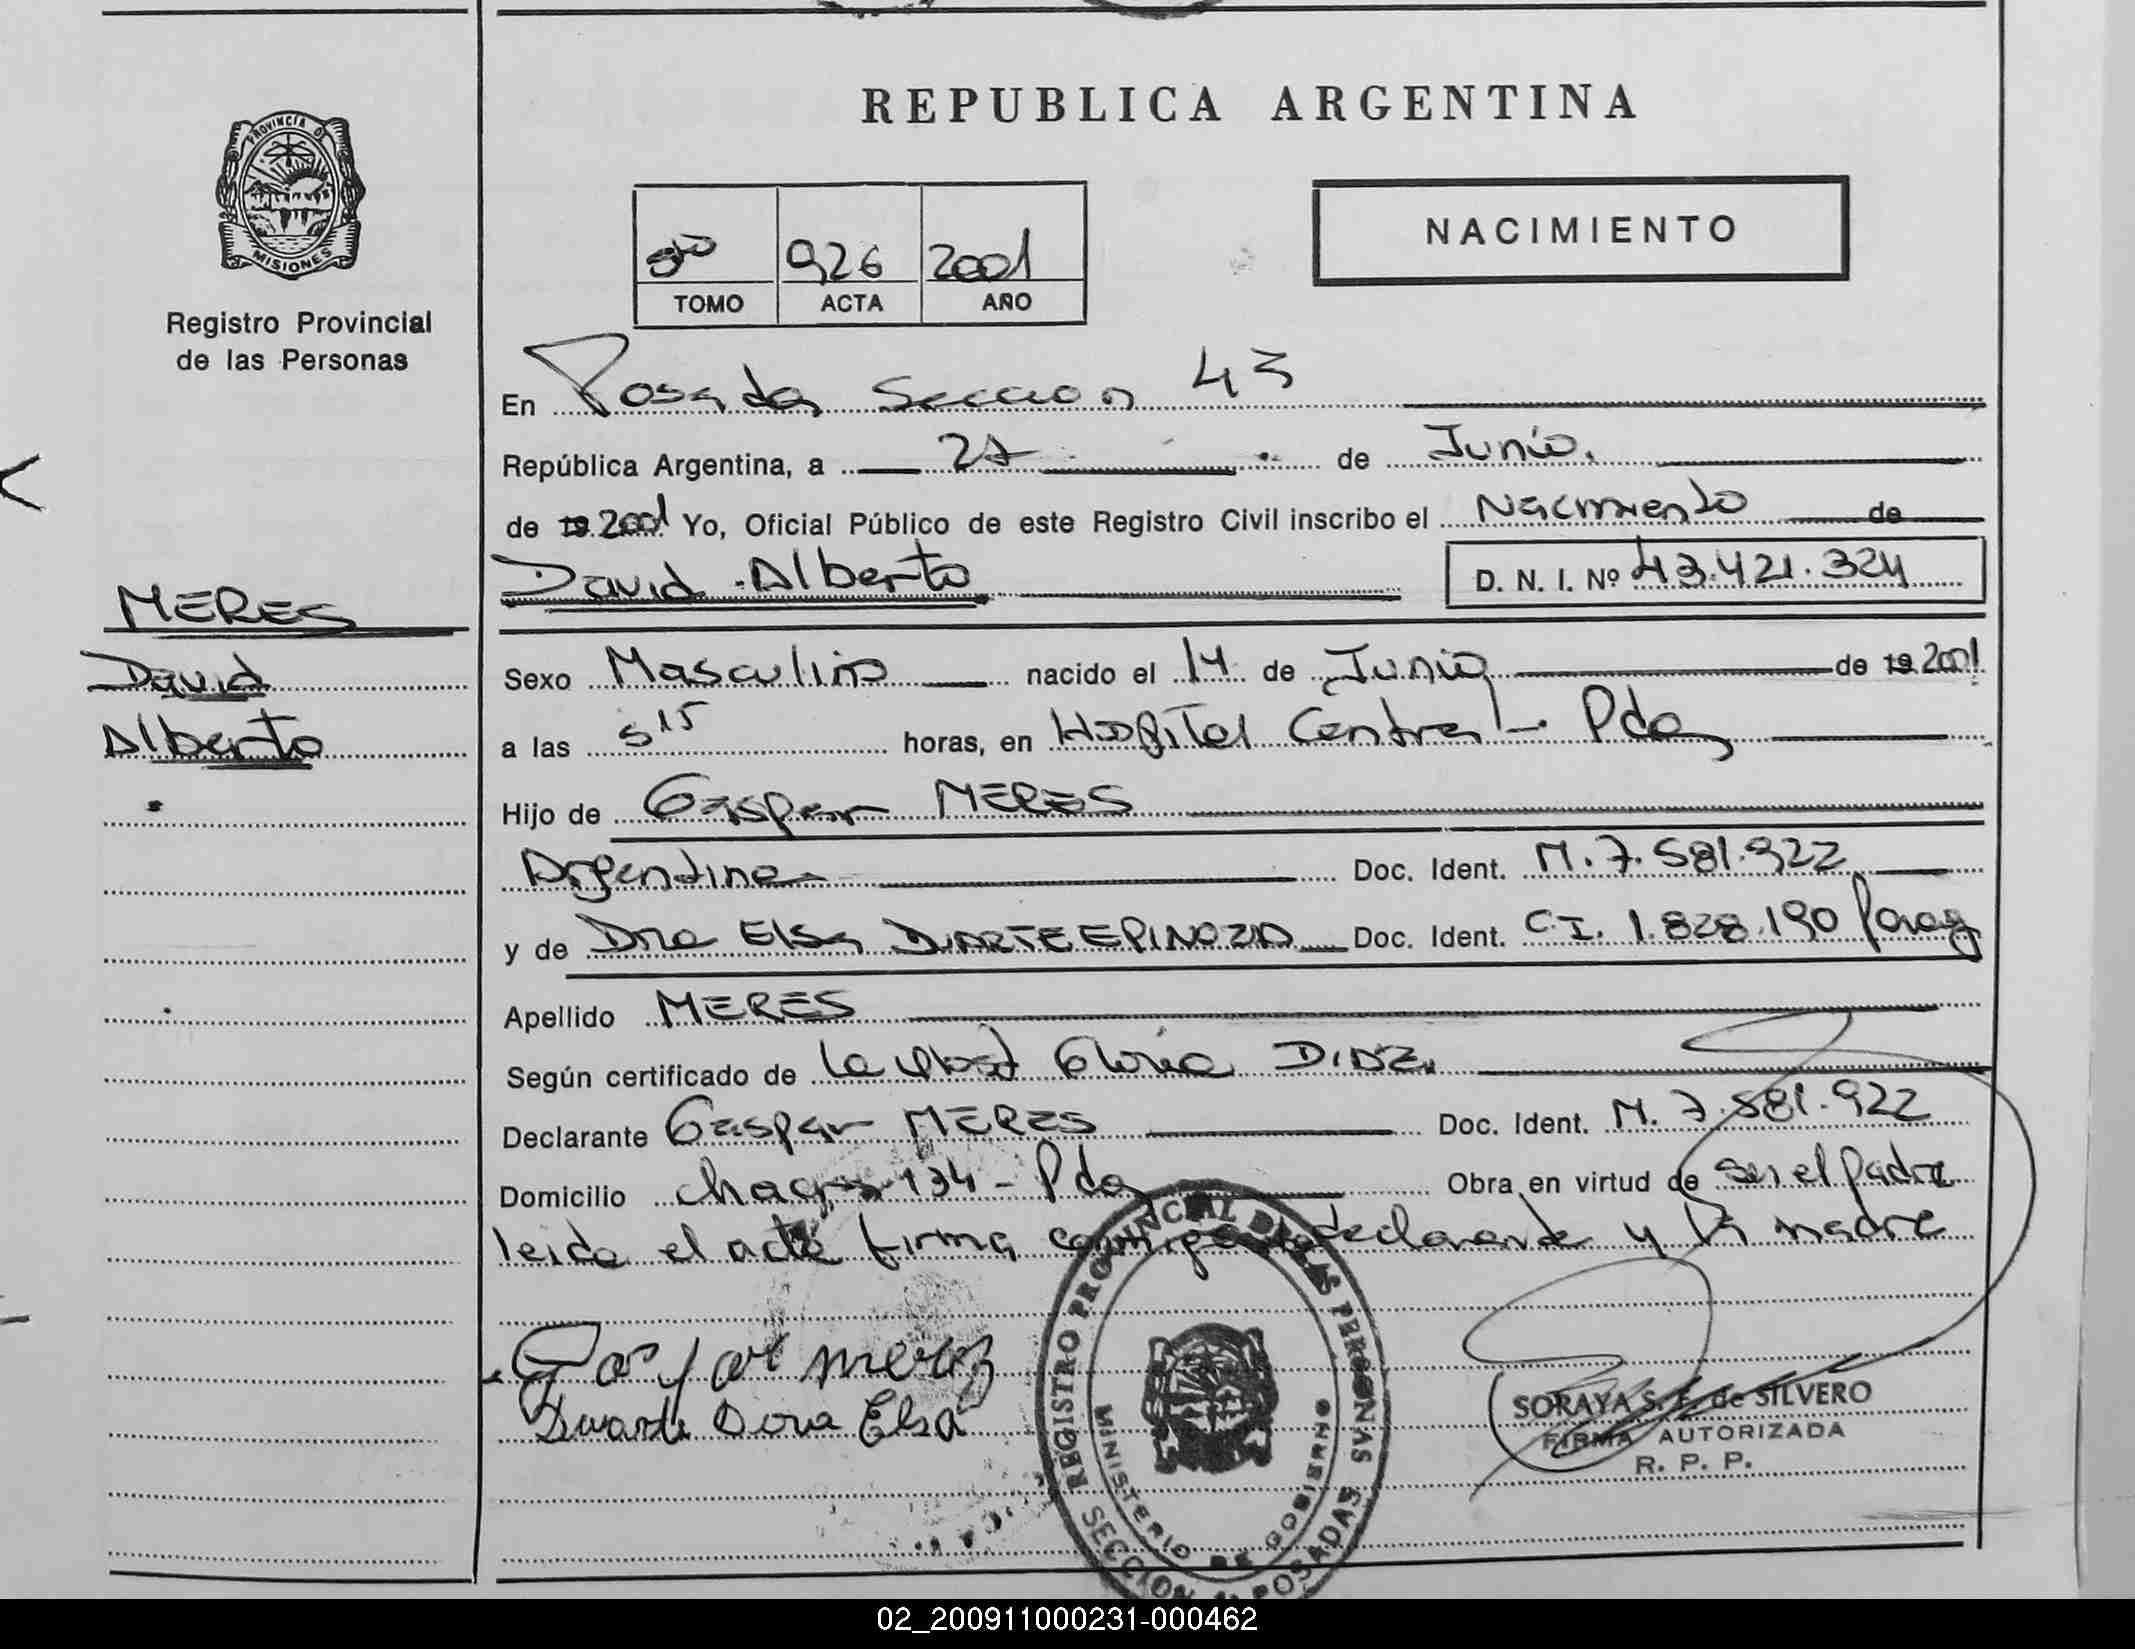 REPUBLICA ARGENTINA
PROVINCIA D
MISIONES
Registro Provincial
de las Personas
926 2001
TOMO ACTA AÑO
NACIMIENTO
En Posadas Seccion 43
República Argentina, a 27 de Junio.
de 19 2001 Yo, Oficial Público de este Registro Civil inscribo el Nacimiento de
David Alberto D. N. I. Nº 43.421.324
MERES
David
Alberto
Sexo Masculino nacido el 14 de Junio de 19 2001.
a las 5 15 horas, en Hospital Central - Pdas
Hijo de Gaspar MERES
Argentino Doc. Ident. M. 7.581.922
y de Dra Elsa DUARTE EPINOZA Doc. Ident. C.I. 1.828.190 Parag
Apellido MERES
Según certificado de la Obst Gloria DIAZ.
Declarante Gaspar MERES Doc. Ident. M. 7.581.922
Domicilio chacra 134 - Pdas Obra en virtud de ser el padre
leida el acta firma conmigo declarante y la madre
Gaspar merez
Duarte Dora Elsa
REGISTRO PROVINCIAL DE LAS PERSONAS
MINISTERIO DE GOBIERNO
SECCION POSADAS
SORAYA S. F. de SILVERO
FIRMA AUTORIZADA
R. P. P.
02_200911000231-000462